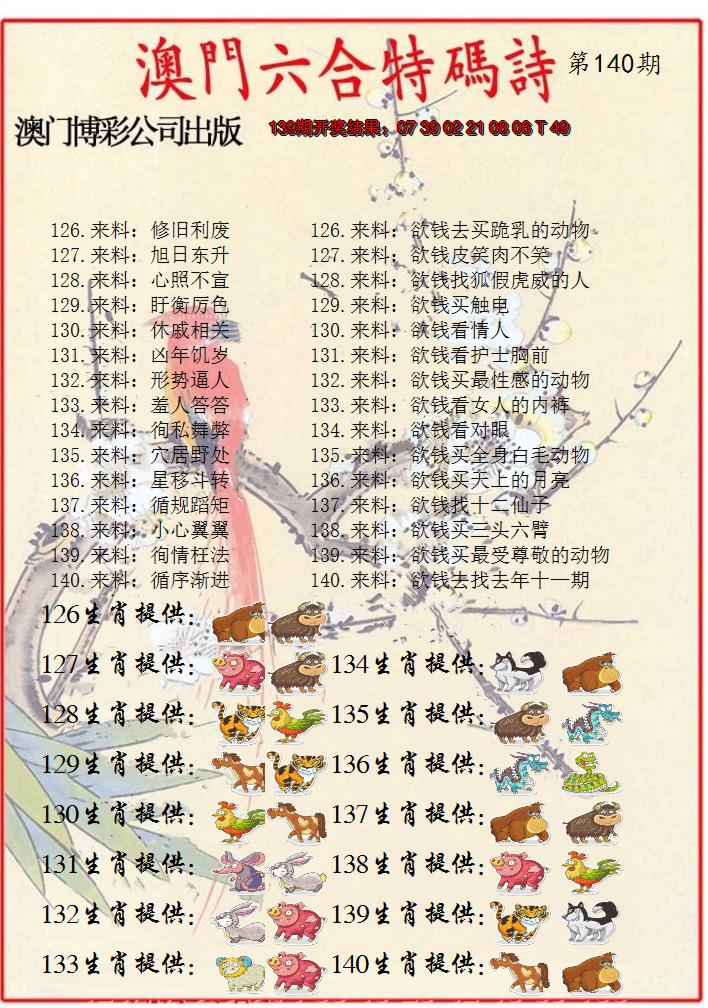 澳門六合特碼詩 第140期
澳门博彩公司出版 139期开奖结果：07 39 02 21 08 06 T 49
126.来料：修旧利废 126.来料：欲钱去买跪乳的动物
127.来料：旭日东升 127.来料：欲钱皮笑肉不笑
128.来料：心照不宣 128.来料：欲钱找狐假虎威的人
129.来料：盱衡厉色 129.来料：欲钱买触电
130.来料：休戚相关 130.来料：欲钱看情人
131.来料：凶年饥岁 131.来料：欲钱看护士胸前
132.来料：形势逼人 132.来料：欲钱买最性感的动物
133.来料：羞人答答 133.来料：欲钱看女人的内裤
134.来料：徇私舞弊 134.来料：欲钱看对眼
135.来料：穴居野处 135.来料：欲钱买全身白毛动物
136.来料：星移斗转 136.来料：欲钱买天上的月亮
137.来料：循规蹈矩 137.来料：欲钱找十二仙子
138.来料：小心翼翼 138.来料：欲钱买三头六臂
139.来料：徇情枉法 139.来料：欲钱买最受尊敬的动物
140.来料：循序渐进 140.来料：欲钱去找去年十一期
126生肖提供：
127生肖提供： 134生肖提供：
128生肖提供： 135生肖提供：
129生肖提供： 136生肖提供：
130生肖提供： 137生肖提供：
131生肖提供： 138生肖提供：
132生肖提供： 139生肖提供：
133生肖提供： 140生肖提供：